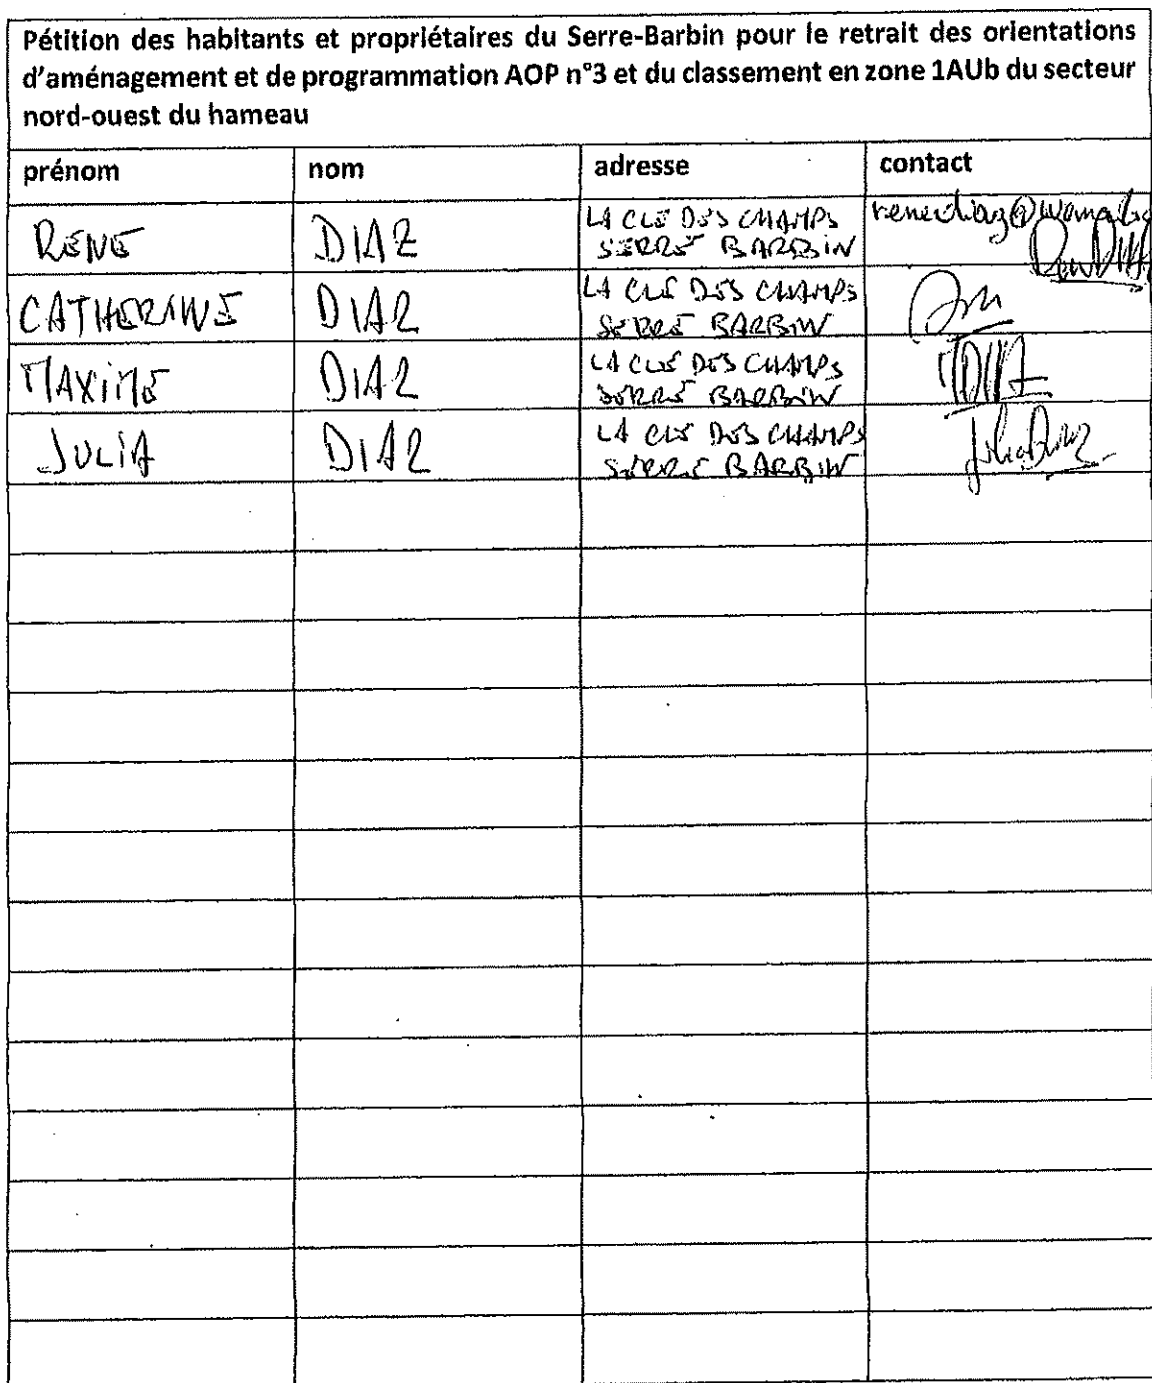 Pétition des habitants et propriétaires du Serre-Barbin pour le retrait des orientations
d'aménagement et de programmation AOP n°3 et du classement en zone 1AUb du secteur
nord-ouest du hameau
prénom nom adresse contact
RENE DIAZ LA CLE DES CHAMPS
SERRE BARBIN
CATHERINE DIAZ LA CLE DES CHAMPS
SERRE BARBIN
MAXIME DIAZ LA CLE DES CHAMPS
SERRE BARBIN
JULIA DIAZ LA CLE DES CHAMPS
SERRE BARBIN